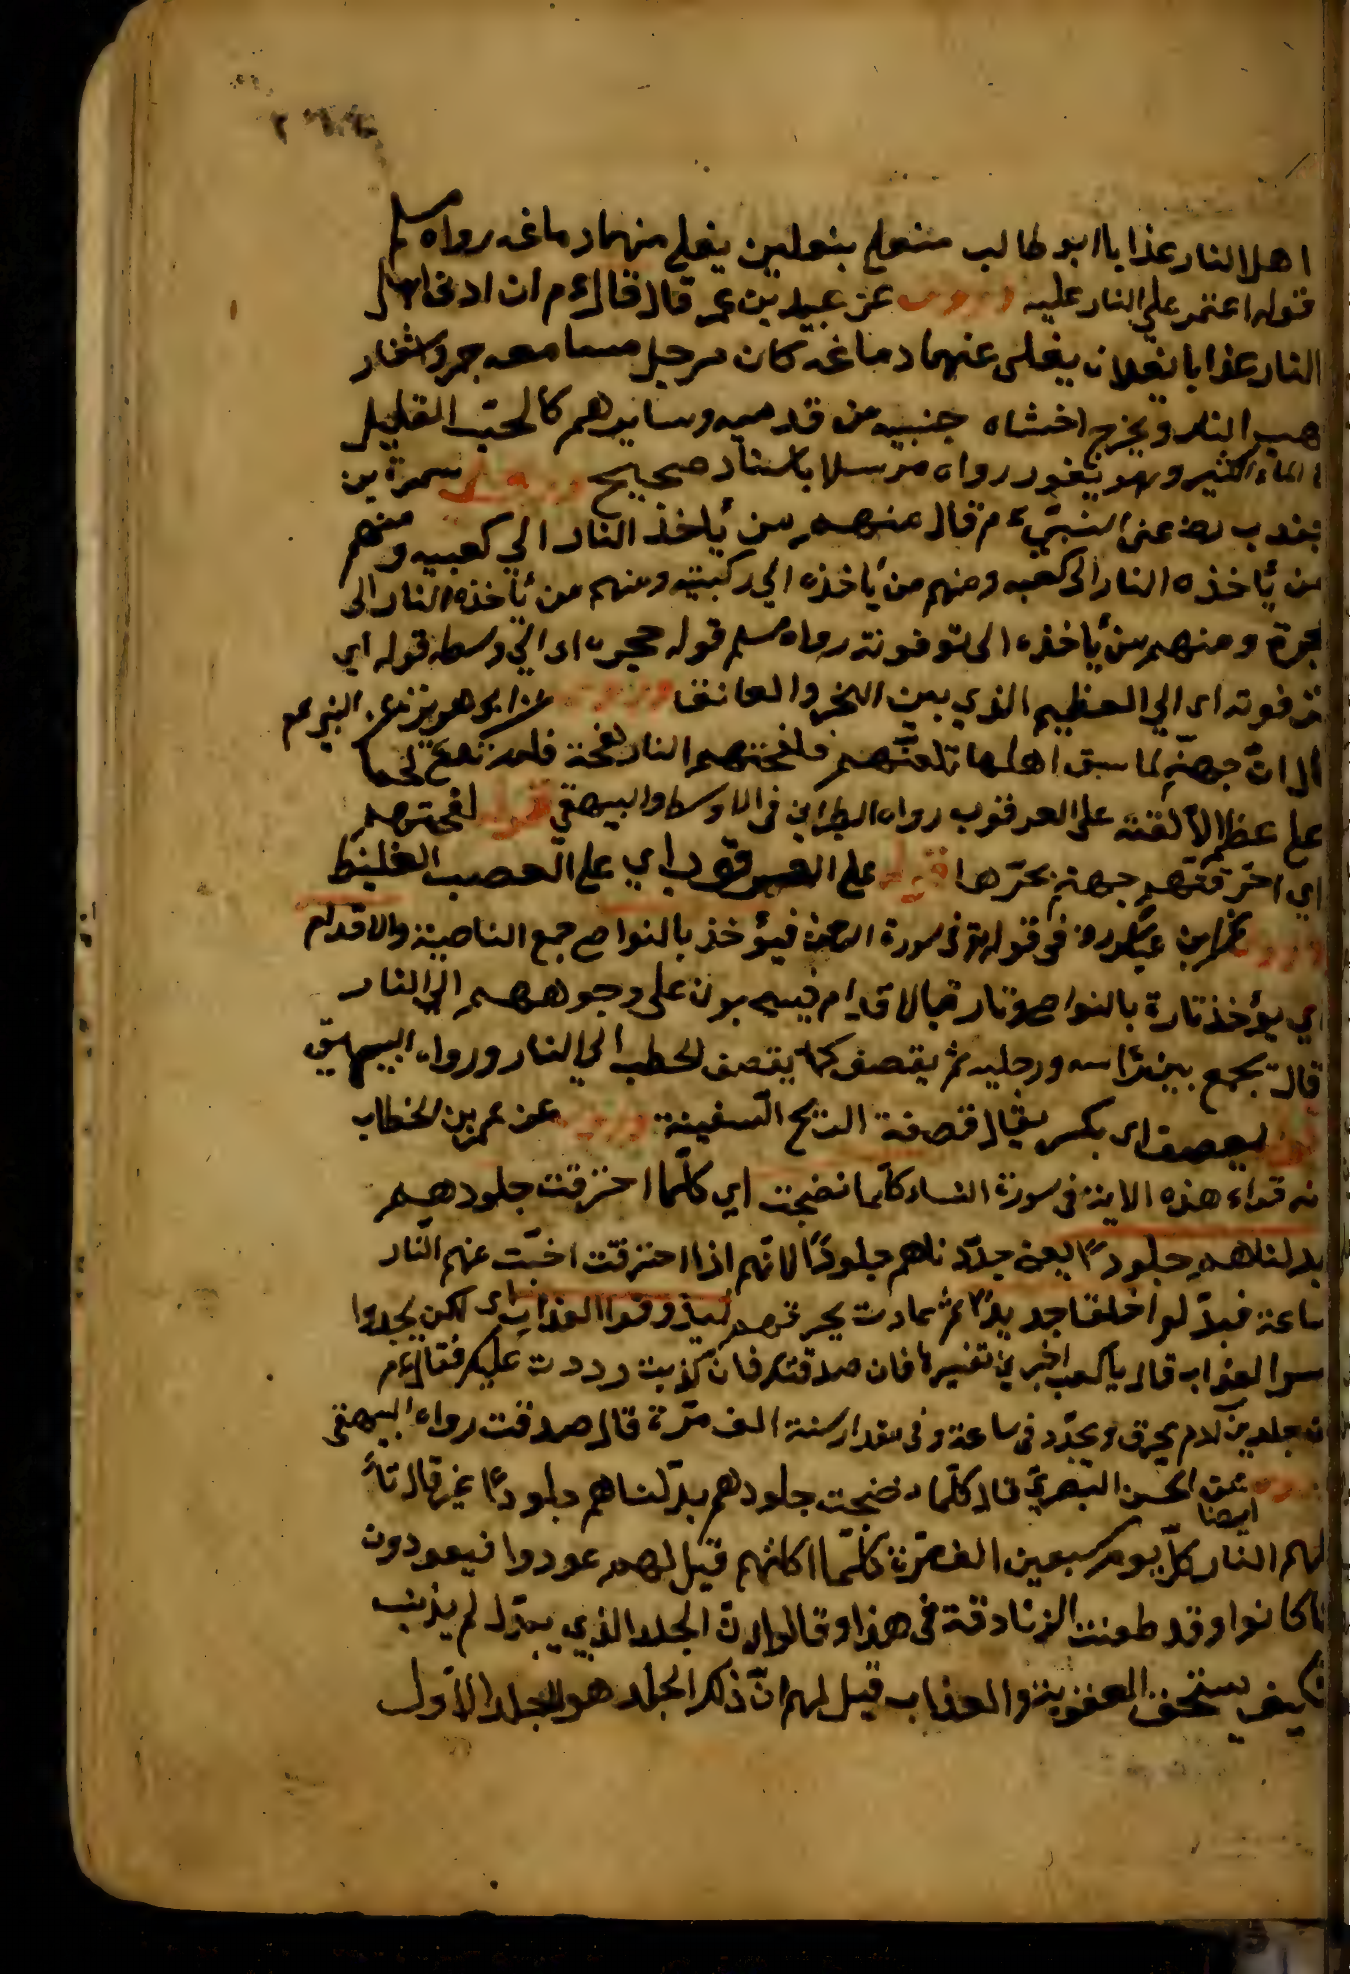 اهل النار عذابا ابو طالب متنعل بنعلين يغلي منهما دماغه رواه مسلم
قوله اغتمر علي النار عليه وروى عن عبيد بن عمر قال قال ءم ان ادنى اهل
النار عذابا نعلان يغلى عنهما دماغه كان مرجل مسامعه جمر واشفار
هب النار ويخرج اخشاء جنبيه من قدميه وسايرهم كالحب القليل
الماء الكثير وهو يفور رواه مرسلا باسناد صحيح وروى سمرة بن
جندب رضه عن النبي ءم قال منهم من يأخذ النار الي كعبيه ومنهم
من يأخذه النار الى كعبه ومنهم من يأخذه الي ركبتيه ومنهم من يأخذه النار الى
حجزة ومنهم من يأخذه الى ترقوته رواه مسلم قوله حجزه اى الي وسطه قوله اي
ترقوته اى الي العظيم الذي بين النخر والعاتق وروى عن ابو هريرة عن النبي عم
ال ان جهنم لما سبق اهلها تلقتهم فلفحتهم النار لفحة فلم تدع لحما
علي عظم الا ألقته على العرقوب رواه الطبراني فى الاوسط والبيهقي قوله لفحتهم
اي احرقتهم جهنم بحرها قوله علي العرقوب اي على العصب الغليظ
وروى عن ابن عباس رض في قوله تع فى سورة الرحمن فيؤخذ بالنواصي جمع الناصية والاقدام
اي يؤخذ تارة بالنواصي وتارة بالاقدام فيسحبون على وجوههم الي النار
قال يجمع بين رأسه ورجليه ثم يقصف كما يقصف الحطب الي النار ورواه البيهقي
قوله يقصف اى يكسر يقال قصفة الريح السفينة وروى عن عمر بن الخطاب
نه قراء هذه الاية فى سورة النساء كلما نضجت اي كلما احترقت جلودهم
بدلناهم جلودًا يعنى جددناهم جلودًا لانهم اذا احترقت اخبت عنهم النار
ساعة فبدلوا خلقا جديدًا ثم عادت يحرقهم ليذوقوا العذاب اى لكن يجدوا
س العذاب قال يا كعب اخبرني تفسيرها فان صدقت صدقتك فان كذبت رددت عليك فقال ءم
ن جلد ابن ادم يحرق ويجدد في ساعة وفى مقدار سنة الف مرة قال صدقت رواه البيهقى
وروى ايضا عن الحسن البصري قال كلما نضجت جلودهم بدلناهم جلودًا غيرها قال تأ
لهم النار كل يوم سبعين الف مرة كلما اكلتهم قيل لهم عودوا فيعودون
كما كانوا وقد طعنت الزنادقة فى هذا وقالوا ان الجلد الذي يبدل لم يذنب
فكيف يستحق العقوبة والعذاب قيل لهم ان ذكر الجلد هو الجلد الاول